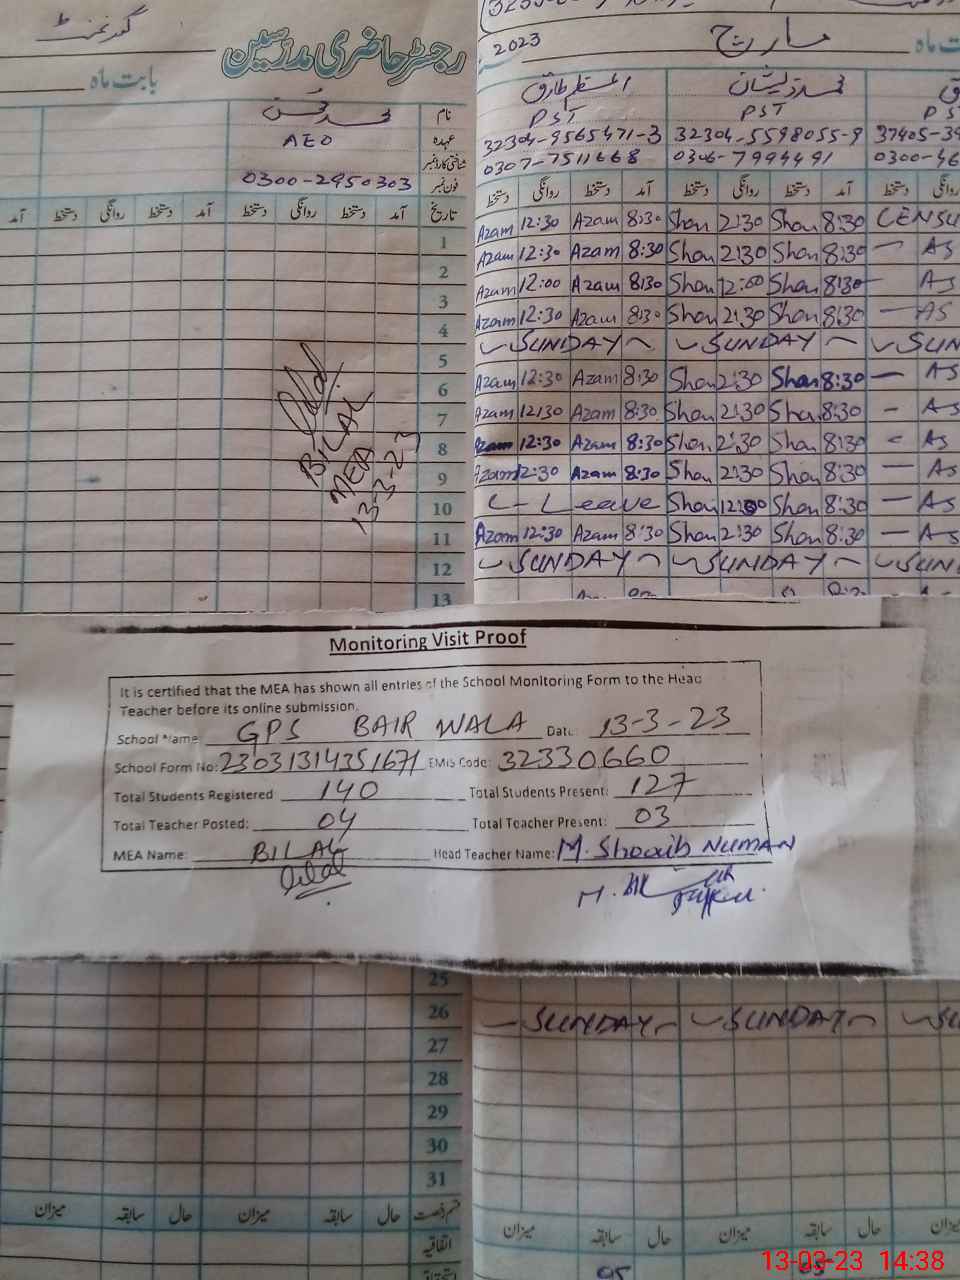 گورنمنٹ
رجسٹر حاضری مدرسین
بابت ماہ
نام
عہدہ AEO
شناختی کارڈ نمبر
فون نمبر 0300-2950303
تاریخ آمد دستخط روانگی دستخط آمد دستخط روانگی دستخط آمد
1
2
3
4
5
6
7
8
9
10
11
12
13
BILAL
MEA
13-3-23
2023 مارچ ت ماہ
PST PST PS
32304-9565471-3 32304-5598055-9 37405-39
0307-7511668 0306-7994491 0300-46
دستخط روانگی دستخط آمد دستخط روانگی دستخط آمد دستخط روانگی
Azam 12:30 Azam 8:30 Shan 2:30 Shan 8:30 CENSU
Azam 12:30 Azam 8:30 Shan 2:30 Shan 8:30 — AS
Azam 12:00 Azam 8:30 Shan 12:00 Shan 8:30 — AS
Azam 12:30 Azam 8:30 Shan 2:30 Shan 8:30 — AS
SUNDAY SUNDAY SUN
Azam 12:30 Azam 8:30 Shan 2:30 Shan 8:30 — AS
Azam 12:30 Azam 8:30 Shan 2:30 Shan 8:30 — AS
Azam 12:30 Azam 8:30 Shan 2:30 Shan 8:30 AS
Azam 12:30 Azam 8:30 Shan 2:30 Shan 8:30 — AS
C- Leave Shan 12:00 Shan 8:30 — AS
Azam 12:30 Azam 8:30 Shan 2:30 Shan 8:30 — AS
SUNDAY SUNDAY SUN
Monitoring Visit Proof
It is certified that the MEA has shown all entries of the School Monitoring Form to the Head
Teacher before its online submission.
School Name: GPS BAIR WALA Date: 13-3-23
School Form No: 23031314351671 EMIS Code: 32330660
Total Students Registered 140 Total Students Present: 127
Total Teacher Posted: 04 Total Teacher Present: 03
MEA Name: BILAL Head Teacher Name: M. Shoaib NUMAN
Bilal
25
26 SUNDAY SUNDAY SU
27
28
29
30
31
قسم رخصت حال سابقہ میزان حال سابقہ میزان
اتفاقیہ
حال سابقہ میزان حال سابقہ میزان
05 05
13-03-23 14:38